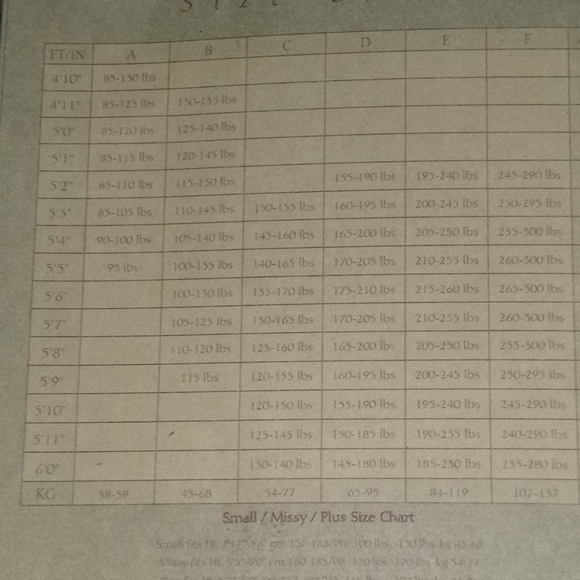 FT/IN A B C D E F
4'10" 85-130 lbs
4'11" 85-125 lbs 130-135 lbs
5'0" 85-120 lbs 125-140 lbs
5'1" 85-115 lbs 120-145 lbs
5'2" 85-110 lbs 115-150 lbs 155-190 lbs 195-240 lbs 245-290 lbs
5'3" 85-105 lbs 110-145 lbs 150-155 lbs 160-195 lbs 200-245 lbs 250-295 lbs
5'4" 90-100 lbs 105-140 lbs 145-160 lbs 165-200 lbs 205-250 lbs 255-300 lbs
5'5" 95 lbs 100-135 lbs 140-165 lbs 170-205 lbs 210-255 lbs 260-300 lbs
5'6" 100-130 lbs 135-170 lbs 175-210 lbs 215-260 lbs 265-300 lbs
5'7" 105-125 lbs 130-165 lbs 170-205 lbs 210-255 lbs 260-300 lbs
5'8" 110-120 lbs 125-160 lbs 165-200 lbs 205-250 lbs 255-300 lbs
5'9" 115 lbs 120-155 lbs 160-195 lbs 200-245 lbs 250-295 lbs
5'10" 120-150 lbs 155-190 lbs 195-240 lbs 245-290 lbs
5'11" 125-145 lbs 150-185 lbs 190-235 lbs 240-290 lbs
6'0" 130-140 lbs 145-180 lbs 185-230 lbs 235-280 lbs
KG 38-59 45-68 54-77 65-95 84-119 107-137
Small / Missy / Plus Size Chart
Small fits Ht.